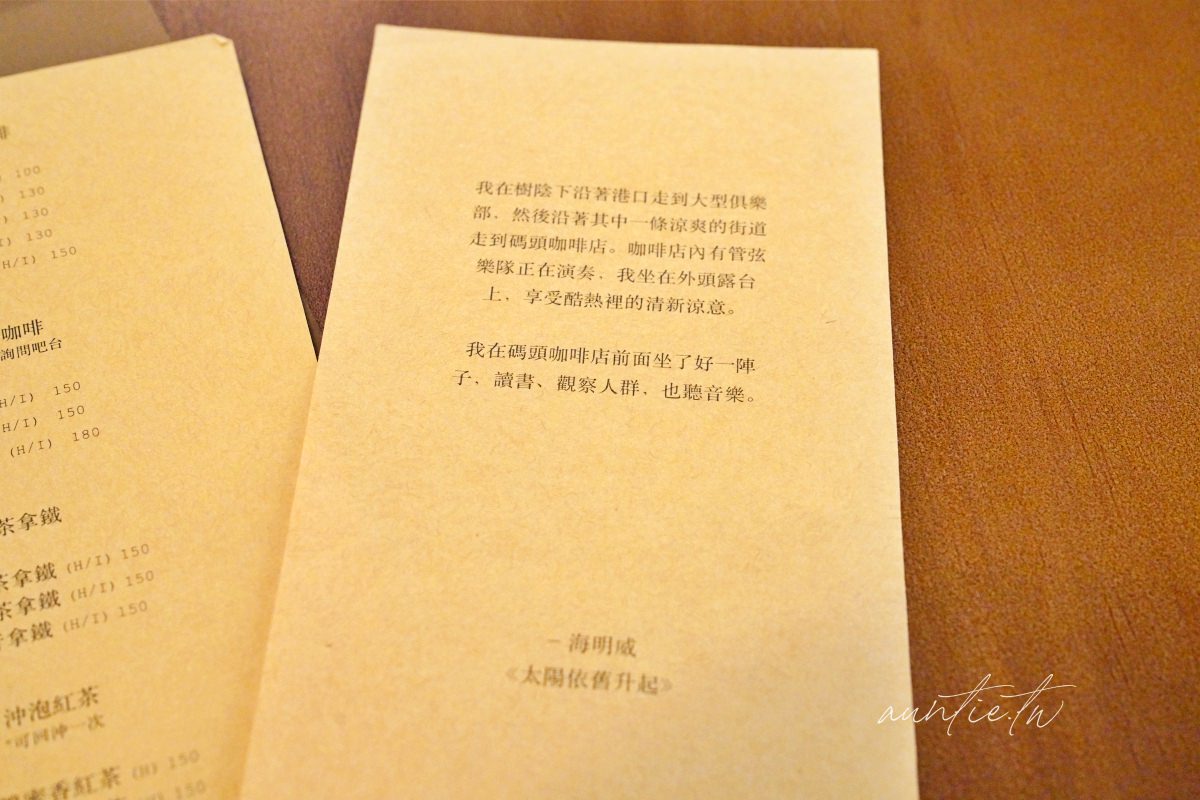 啡
100
130
130
130
(H/I) 150
咖啡
詢問吧台
(H/I) 150
(H/I) 150
(H/I) 180
茶拿鐵
茶拿鐵 (H/I) 150
茶拿鐵 (H/I) 150
拿鐵 (H/I) 150
沖泡紅茶
*可回沖一次
蜜香紅茶 (H) 150
150
我在樹陰下沿著港口走到大型俱樂
部，然後沿著其中一條涼爽的街道
走到碼頭咖啡店。咖啡店內有管弦
樂隊正在演奏，我坐在外頭露台
上，享受酷熱裡的清新涼意。
我在碼頭咖啡店前面坐了好一陣
子，讀書、觀察人群，也聽音樂。
– 海明威
《太陽依舊升起》
auntie.tw